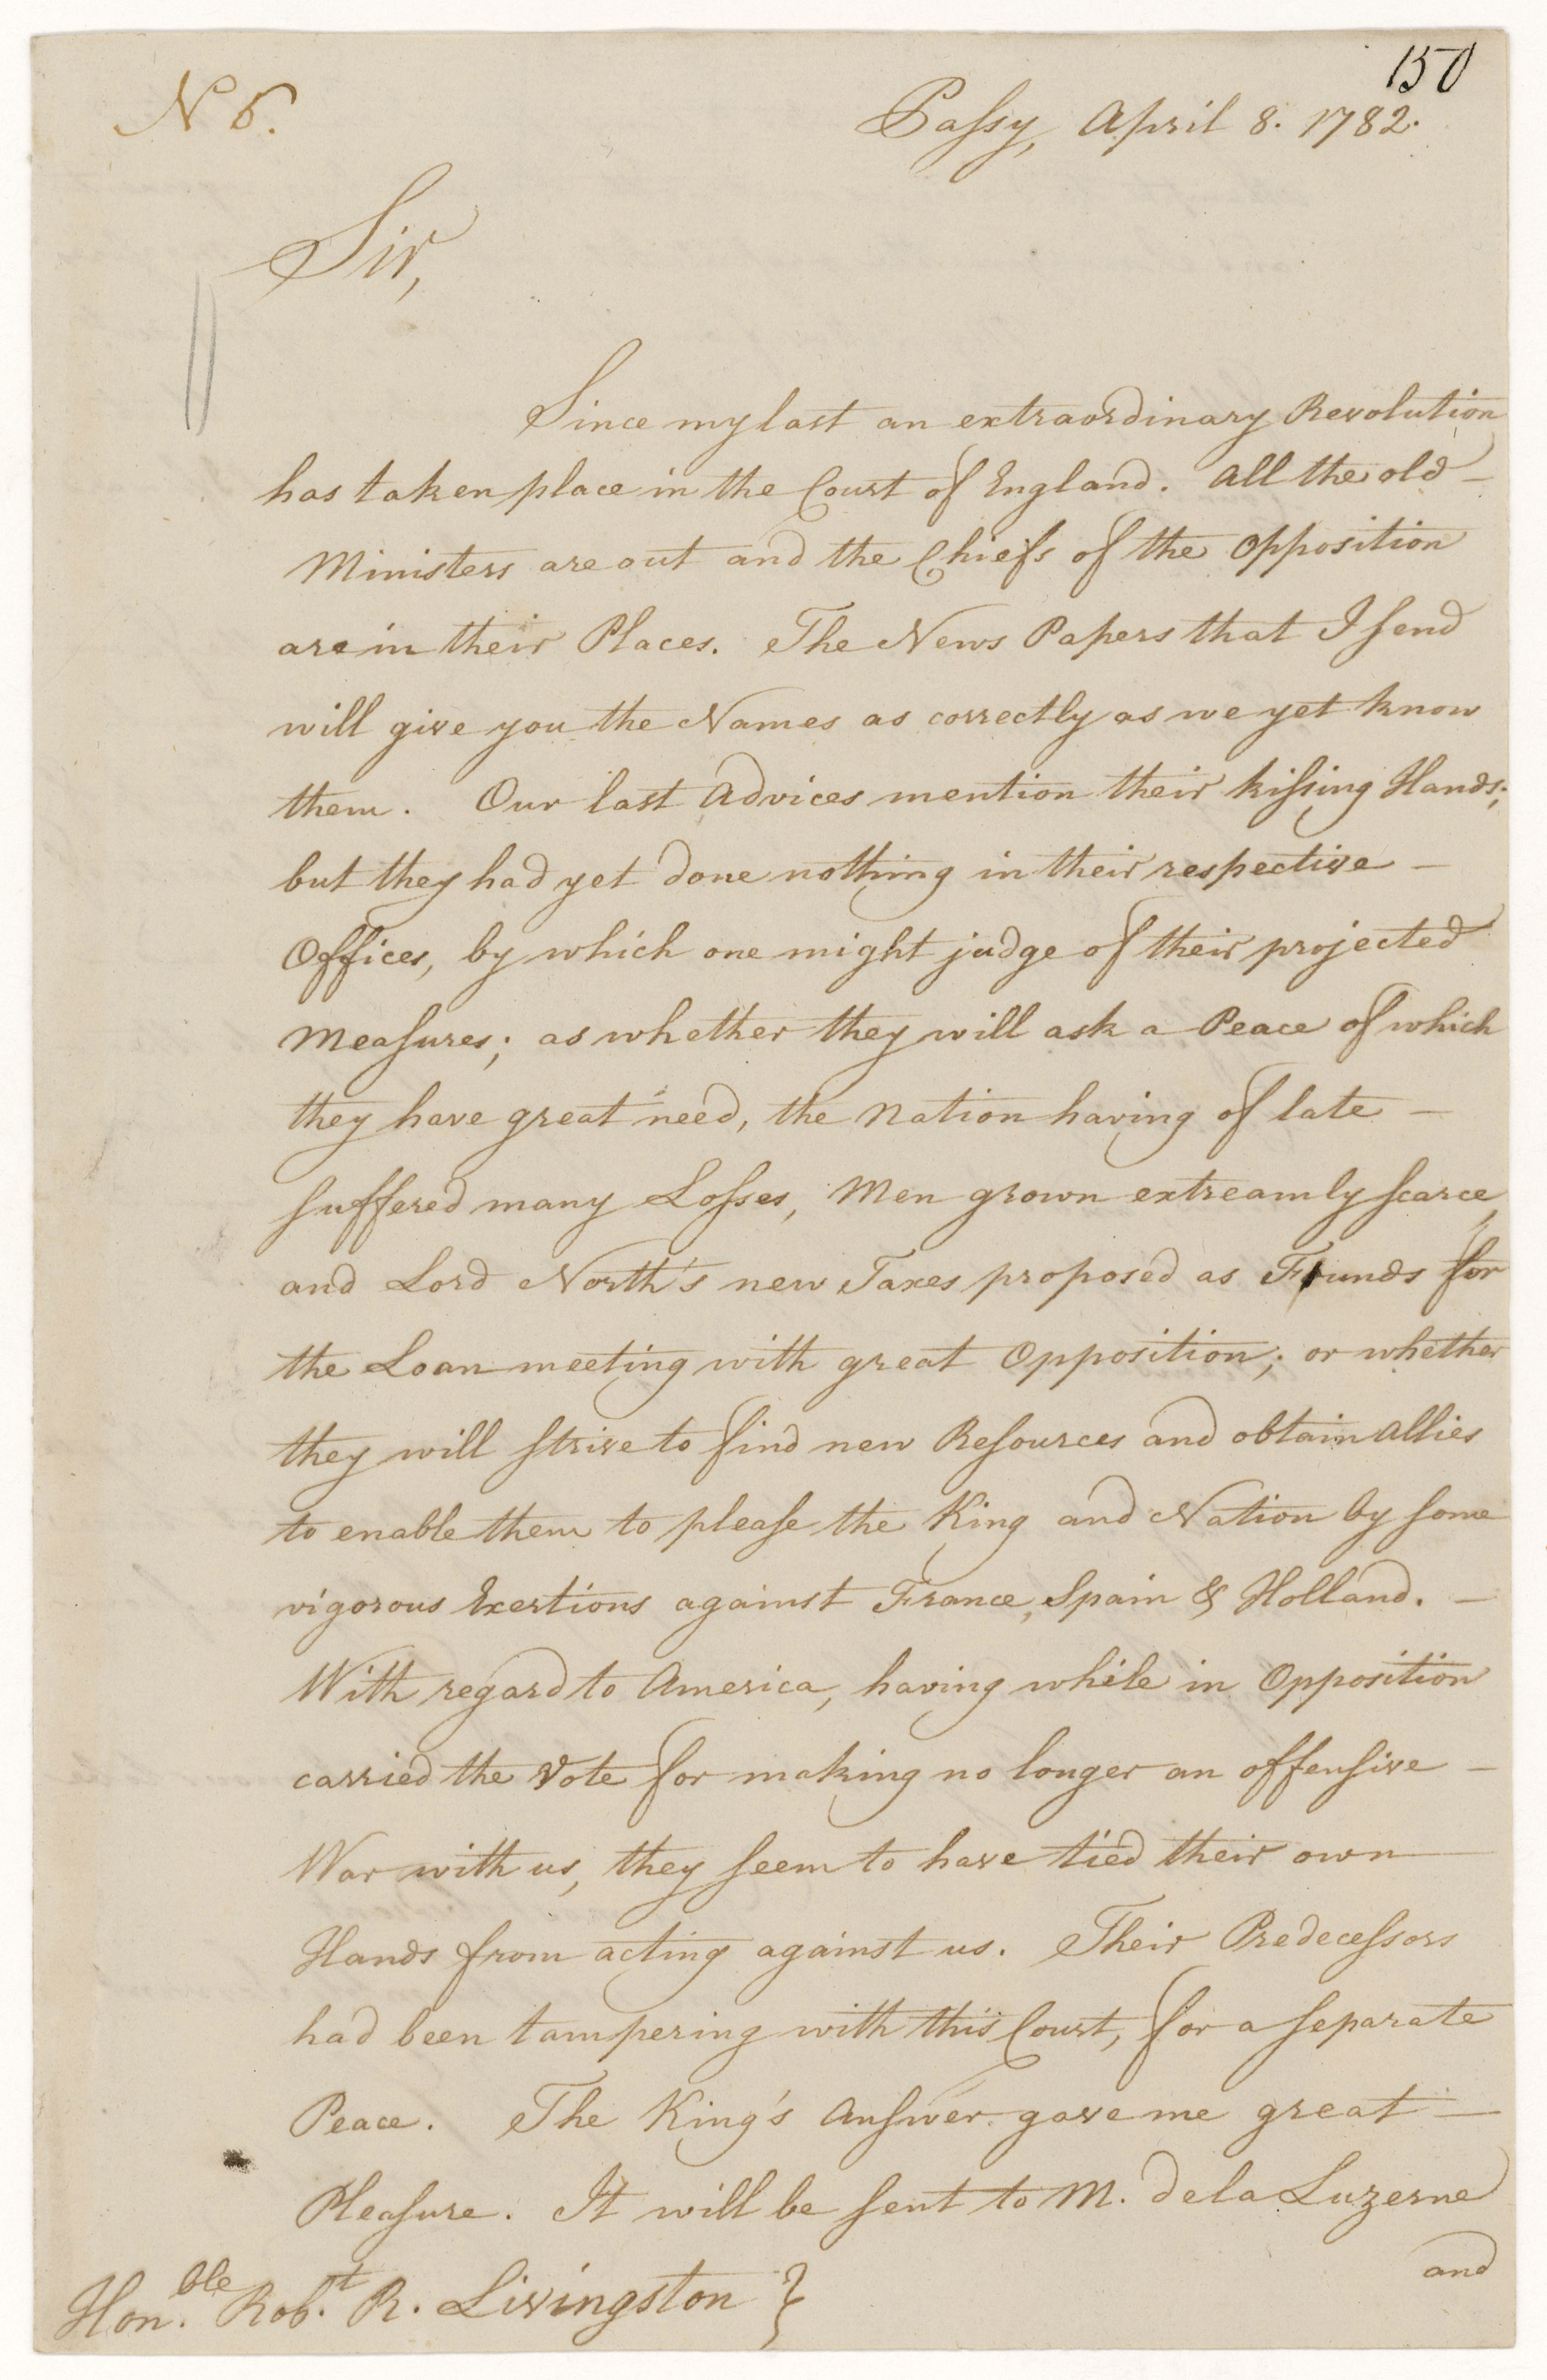 150
N 6.
Paſsy, April 8. 1782.
Sir,
Since my last an extraordinary Revolution
has taken place in the Court of England. All the old —
Ministers are out and the Chiefs of the Opposition
are in their Places. The News Papers that I ſend
will give you the Names as correctly as we yet know
them. Our last Advices mention their kiſsing Hands;
but they had yet done nothing in their respective —
Offices, by which one might judge of their projected
Meaſures; as whether they will ask a Peace of which
they have great need, the Nation having of late —
ſuffered many Loſses, Men grown extreamly ſcarce,
and Lord North's new Taxes proposed as Funds for
the Loan meeting with great Opposition; or whether
they will ſtrive to find new Reſources and obtain Allies
to enable them to pleaſe the King and Nation by ſome
vigorous Exertions against France, Spain & Holland. —
With regard to America, having while in Opposition
carried the Vote for making no longer an offenſive —
War with us, they ſeem to have tied their own
Hands from acting against us. Their Predeceſsors
had been tampering with this Court, for a ſeparate
Peace. The King's Anſwer gave me great —
Pleaſure. It will be ſent to M. de la Luzerne
and
Hon.ble Rob.t R. Livingston }